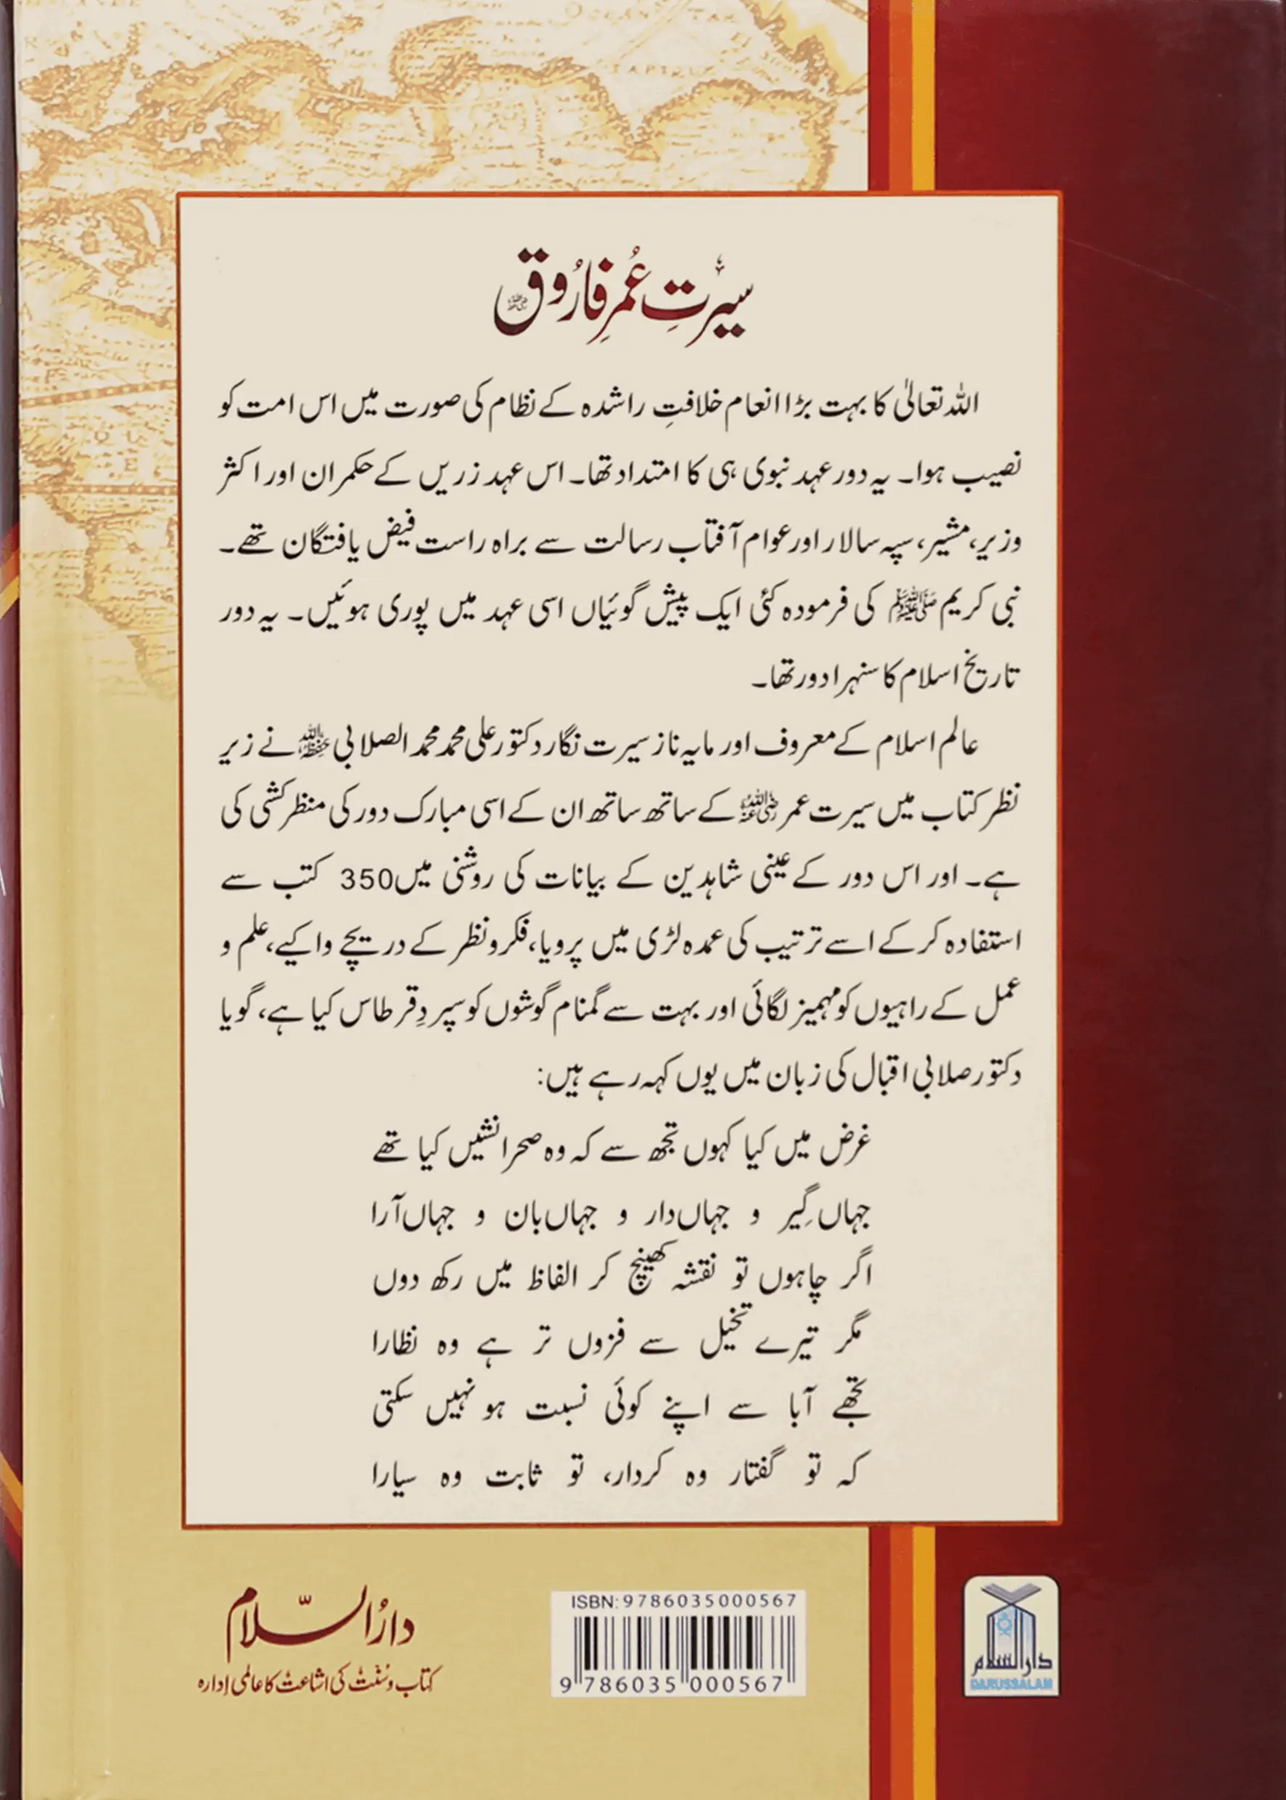 سیرتِ عُمرِ فارُوق ؓ
اللہ تعالیٰ کا بہت بڑا انعام خلافتِ راشدہ کے نظام کی صورت میں اس امت کو
نصیب ہوا۔ یہ دور عہد نبوی ہی کا امتداد تھا۔ اس عہد زریں کے حکمران اور اکثر
وزیر، مشیر، سپہ سالار اور عوام آفتاب رسالت سے براہ راست فیض یافتگان تھے۔
نبی کریم ﷺ کی فرمودہ کئی ایک پیش گوئیاں اسی عہد میں پوری ہوئیں۔ یہ دور
تاریخ اسلام کا سنہرا دور تھا۔
عالم اسلام کے معروف اور مایہ ناز سیرت نگار دکتور علی محمد محمد الصلابی حفظہ اللہ نے زیر
نظر کتاب میں سیرت عمر ؓ کے ساتھ ساتھ ان کے اسی مبارک دور کی منظر کشی کی
ہے۔ اور اس دور کے عینی شاہدین کے بیانات کی روشنی میں 350 کتب سے
استفادہ کر کے اسے ترتیب کی عمدہ لڑی میں پرویا، فکر و نظر کے دریچے وا کیے، علم و
عمل کے راہیوں کو مہمیز لگائی اور بہت سے گمنام گوشوں کو سپردِ قرطاس کیا ہے، گویا
دکتور صلابی اقبال کی زبان میں یوں کہہ رہے ہیں:
غرض میں کیا کہوں تجھ سے کہ وہ صحرا نشیں کیا تھے
جہاں گیر و جہاں دار و جہاں بان و جہاں آرا
اگر چاہوں تو نقشہ کھینچ کر الفاظ میں رکھ دوں
مگر تیرے تخیل سے فزوں تر ہے وہ نظارا
تجھے آبا سے اپنے کوئی نسبت ہو نہیں سکتی
کہ تو گفتار وہ کردار، تو ثابت وہ سیارا
دارُالسّلام
کتاب و سُنّت کی اشاعت کا عالمی اِدارہ
ISBN: 9786035000567
9 786035 000567
دارالسلام
DARUSSALAM